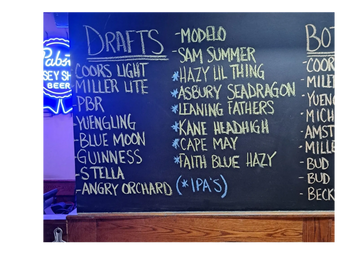 Pabst
SEY SH
BEER
DRAFTS
COORS LIGHT
MILLER LITE
-PBR
-YUENGLING
-BLUE MOON
-GUINNESS
-STELLA
-ANGRY ORCHARD
-MODELO
-SAM SUMMER
*HAZY LIL THING
*ASBURY SEADRAGON
*LEANING FATHERS
*KANE HEADHIGH
*CAPE MAY
*FAITH BLUE HAZY
(*IPA'S)
BOT
-COOR
-MILLE
-YUENG
-MICH
-AMST
-MILLE
-BUD
-BUD
-BECK